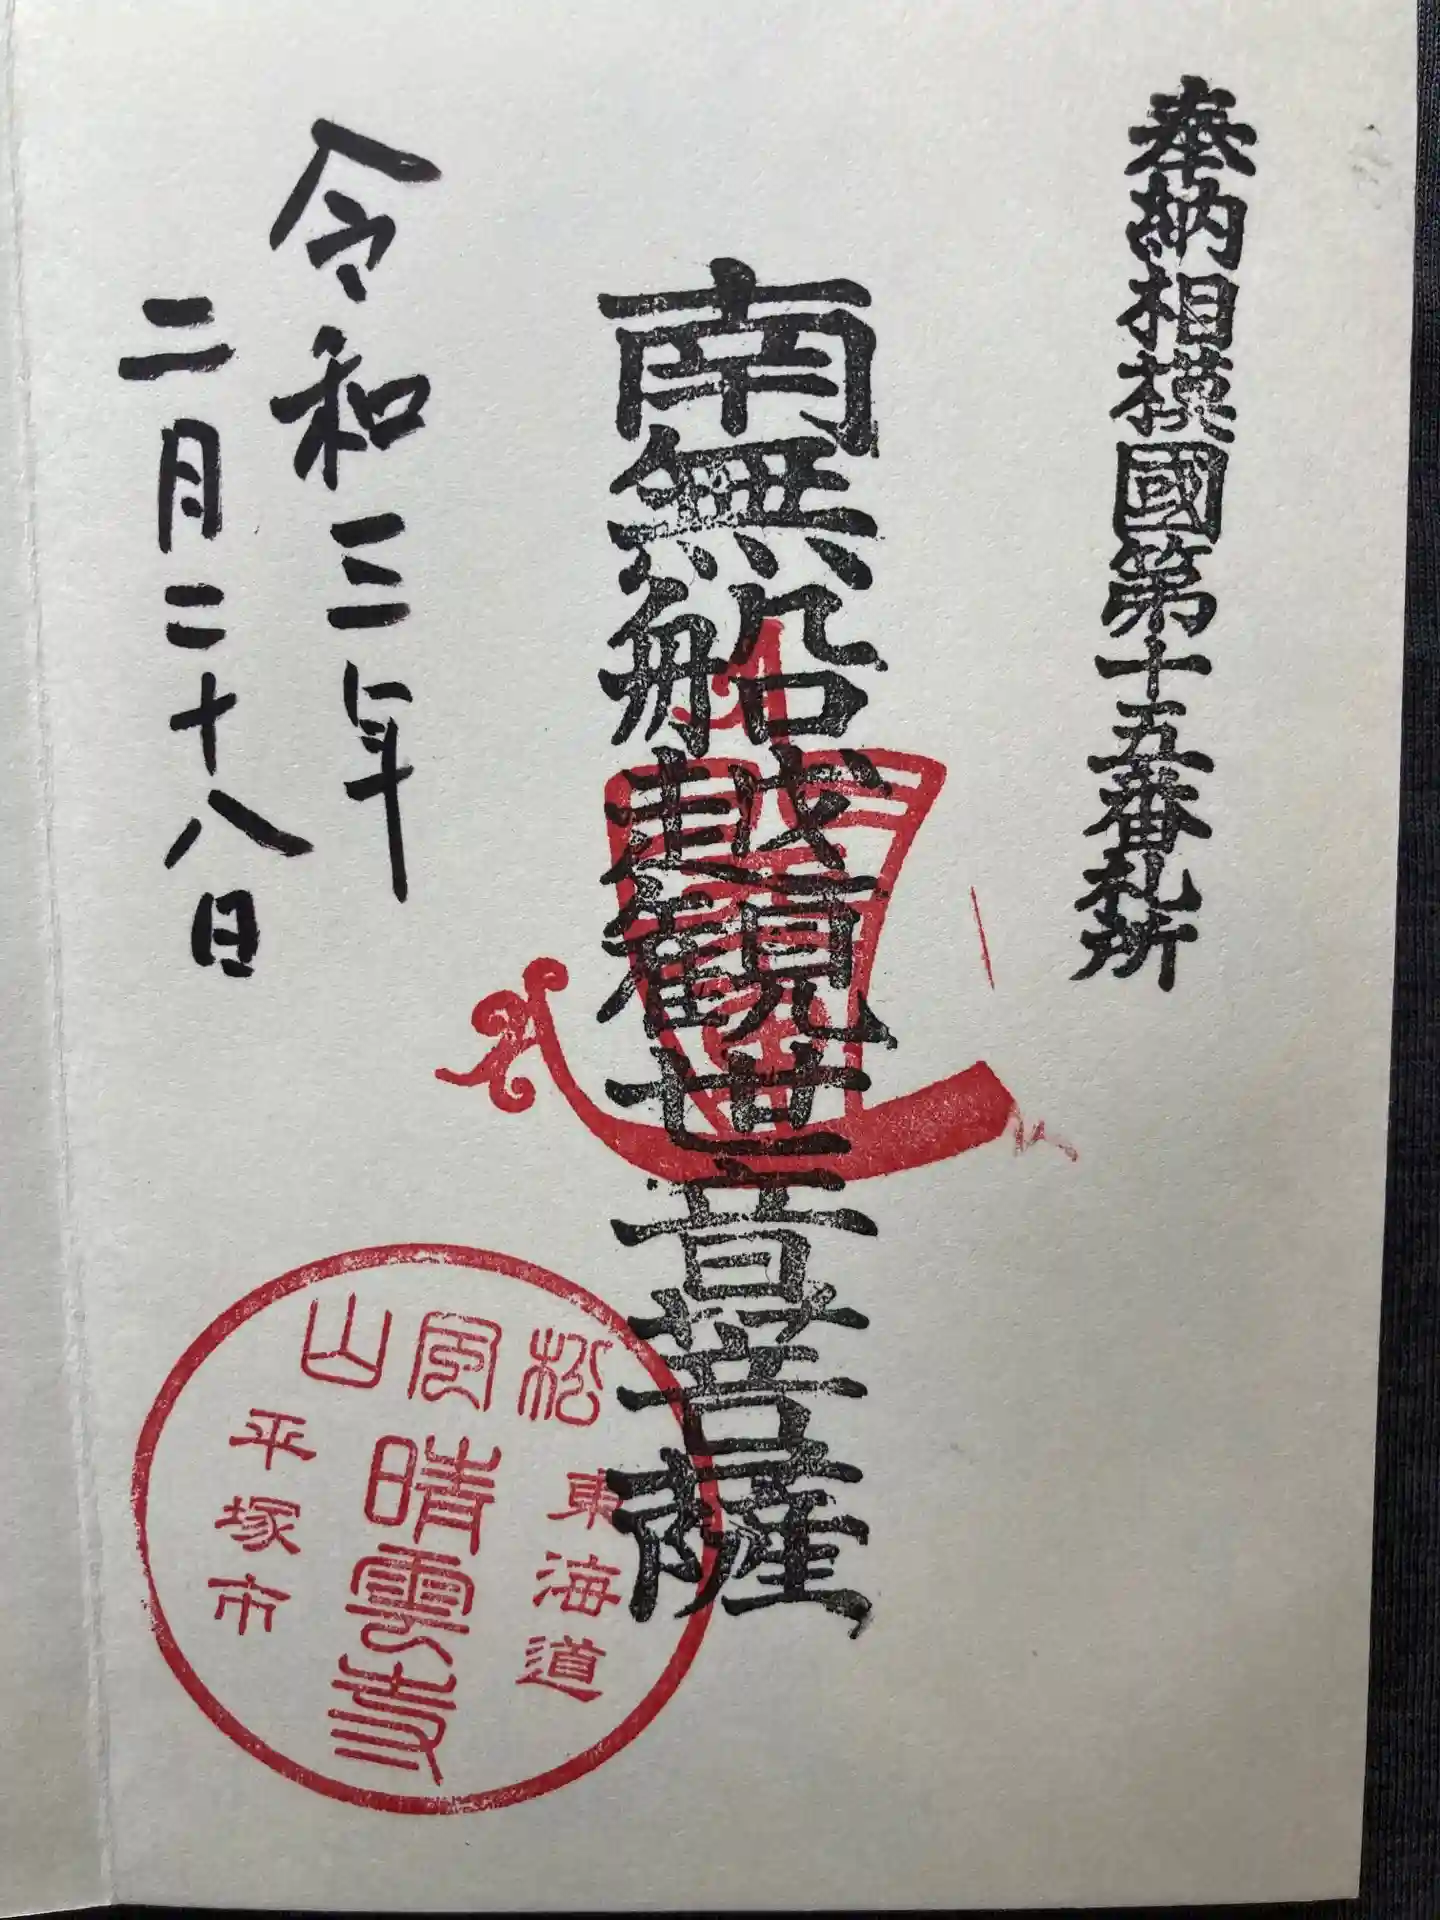 奉納相模國第十五番札所
南無船越観世音菩薩
令和三年
二月二十八日
松風山
東海道
晴雲寺
平塚市